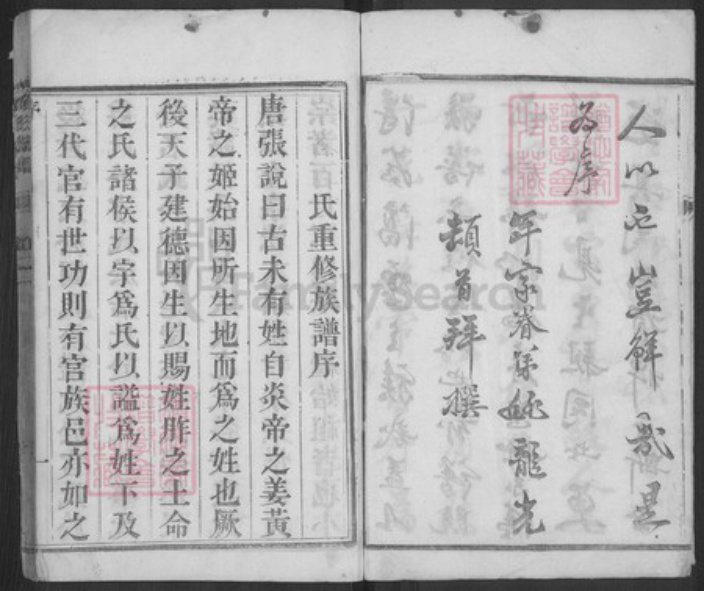 人以也豈鮮哉是
為序
年家眷弟姚龍光
頓首拜撰
氏重修族譜序
唐張說曰古未有姓自炎帝之姜黃
帝之姬始因所生地而為之姓也厥
後天子建德因生以賜姓胙之土命
之氏諸侯以字為氏以謚為姓下及
三代官有世功則有官族邑亦如之
序
一
FamilySearch